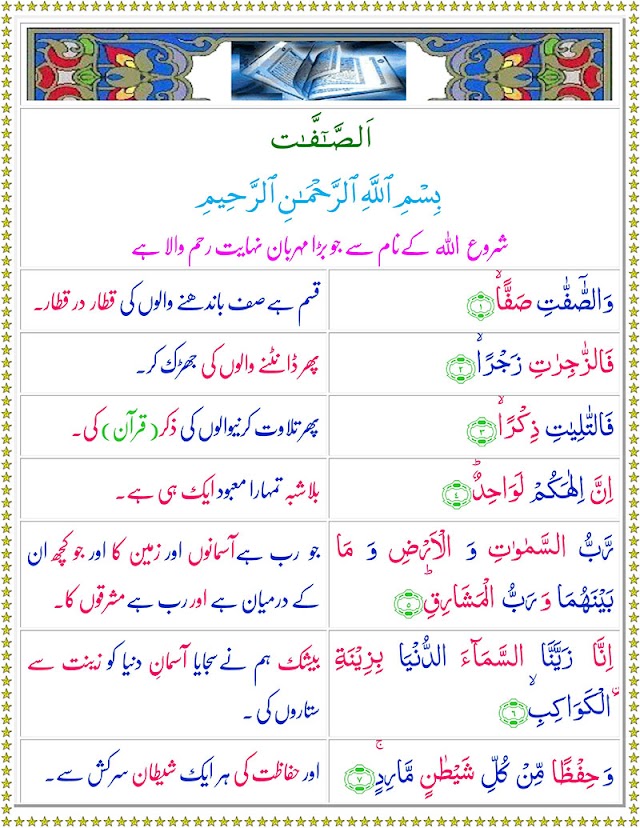 اَلصّٰٓفّٰت
بِسْمِ ٱللَّهِ ٱلرَّحْمَـٰنِ ٱلرَّحِيمِ
شروع اللہ کے نام سے جو بڑا مہربان نہایت رحم والا ہے
وَالصّٰٓفّٰتِ صَفًّاۙ ﴿۱﴾
قسم ہے صف باندھنے والوں کی قطار در قطار۔
فَالزّٰجِرٰتِ زَجْرًاۙ ﴿۲﴾
پھر ڈانٹنے والوں کی جھڑک کر۔
فَالتّٰلِيٰتِ ذِكْرًاۙ ﴿۳﴾
پھر تلاوت کرنیوالوں کی ذکر (قرآن) کی۔
اِنَّ اِلٰهَكُمْ لَوَاحِدٌؕ ﴿۴﴾
بلاشبہ تمہارا معبود ایک ہی ہے۔
رَبُّ السَّمٰوٰتِ وَ الْاَرْضِ وَ مَا
بَيْنَهُمَا وَ رَبُّ الْمَشَارِقِؕ ﴿۵﴾
جو رب ہے آسمانوں اور زمین کا اور جو کچھ ان
کے درمیان ہے اور رب ہے مشرقوں کا۔
اِنَّا زَيَّنَّا السَّمَآءَ الدُّنْيَا بِزِيْنَةِ
اۨلْكَوَاكِبِۙ ﴿۶﴾
بیشک ہم نے سجایا آسمانِ دنیا کو زینت سے
ستاروں کی ۔
وَ حِفْظًا مِّنْ كُلِّ شَيْطٰنٍ مَّارِدٍۚ ﴿۷﴾
اور حفاظت کی ہر ایک شیطان سرکش سے۔